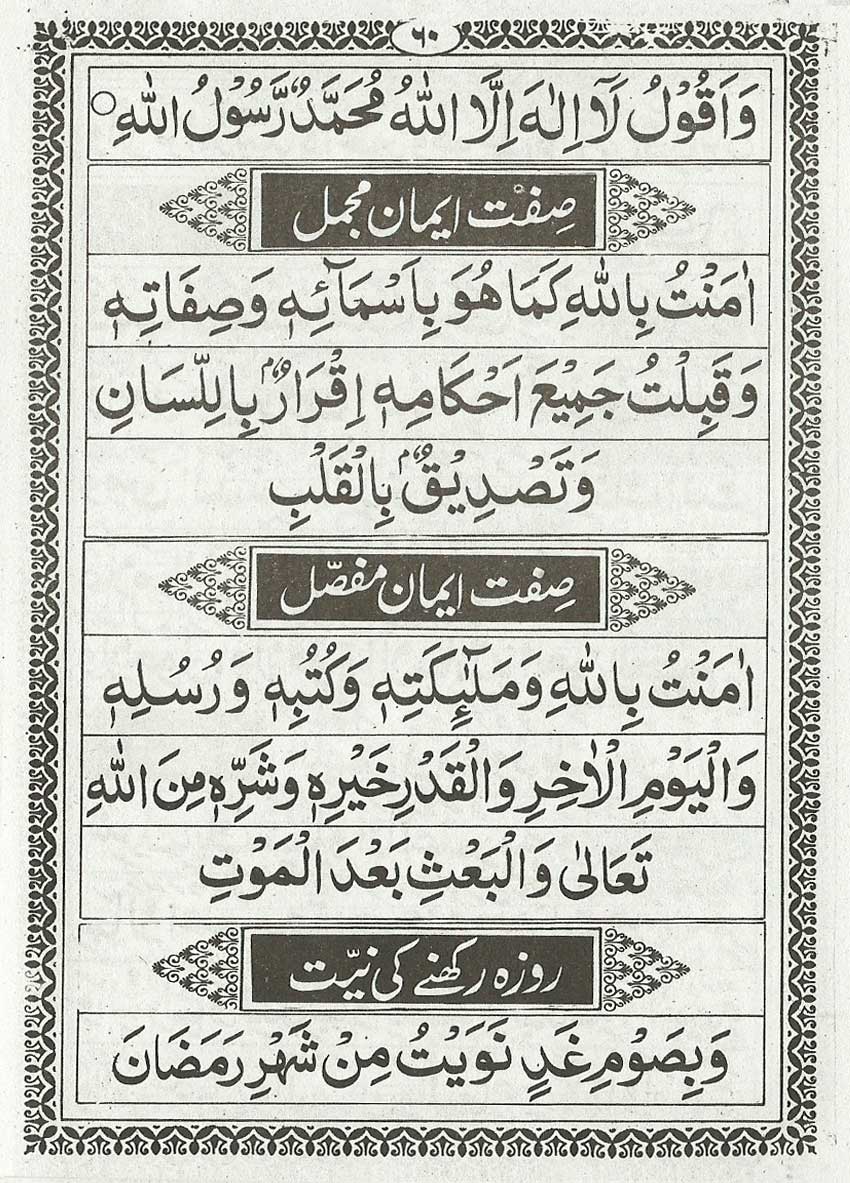 ٦٠
وَاَقُوْلُ لَآ اِلٰهَ اِلَّا اللهُ مُحَمَّدٌ رَّسُوْلُ اللهِ ○
صِفت ایمان مجمل
اٰمَنْتُ بِاللهِ كَمَا هُوَ بِاَسْمَآئِهٖ وَصِفَاتِهٖ
وَقَبِلْتُ جَمِيْعَ اَحْكَامِهٖ اِقْرَارٌۢ بِاللِّسَانِ
وَتَصْدِيْقٌۢ بِالْقَلْبِ
صِفت ایمان مفصّل
اٰمَنْتُ بِاللهِ وَمَلٰٓئِكَتِهٖ وَكُتُبِهٖ وَرُسُلِهٖ
وَالْيَوْمِ الْاٰخِرِ وَالْقَدْرِ خَيْرِهٖ وَشَرِّهٖ مِنَ اللهِ
تَعَالٰى وَالْبَعْثِ بَعْدَ الْمَوْتِ
روزہ رکھنے کی نیّت
وَبِصَوْمِ غَدٍ نَوَيْتُ مِنْ شَهْرِ رَمَضَانَ